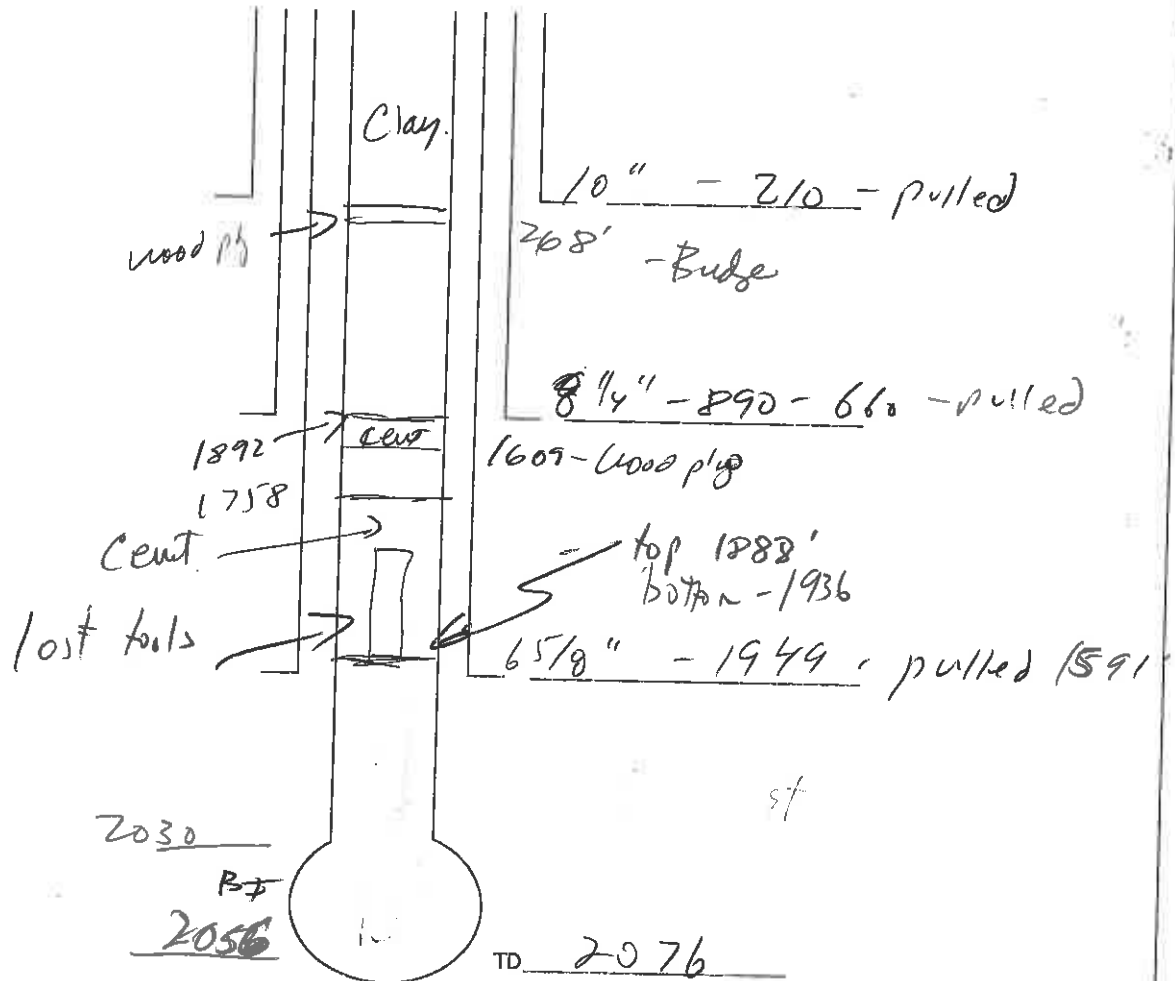 Clay.
10" - 210 - pulled
wood
268'
- Bridge
8 1/4" - 890 - 660 - pulled
1892
cent
1609 - Wood plug
1758
Cent.
top 1888'
bottom - 1936
lost tools
6 5/8" - 1949 . pulled 1591'
st
2030
2056
TD 2076